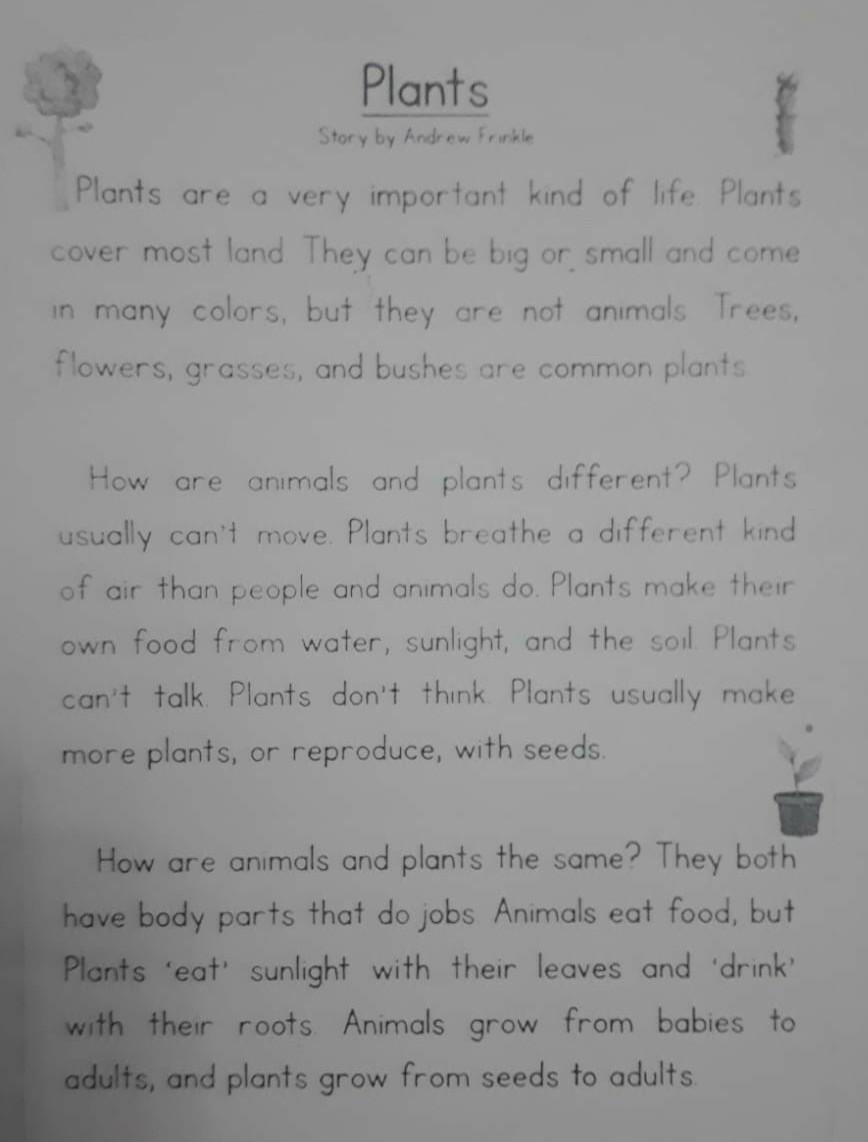 Plants
Story by Andrew Frinkle
Plants are a very important kind of life. Plants
cover most land. They can be big or small and come
in many colors, but they are not animals. Trees,
flowers, grasses, and bushes are common plants.
How are animals and plants different? Plants
usually can't move. Plants breathe a different kind
of air than people and animals do. Plants make their
own food from water, sunlight, and the soil. Plants
can't talk. Plants don't think. Plants usually make
more plants, or reproduce, with seeds.
How are animals and plants the same? They both
have body parts that do jobs. Animals eat food, but
Plants 'eat' sunlight with their leaves and 'drink'
with their roots. Animals grow from babies to
adults, and plants grow from seeds to adults.